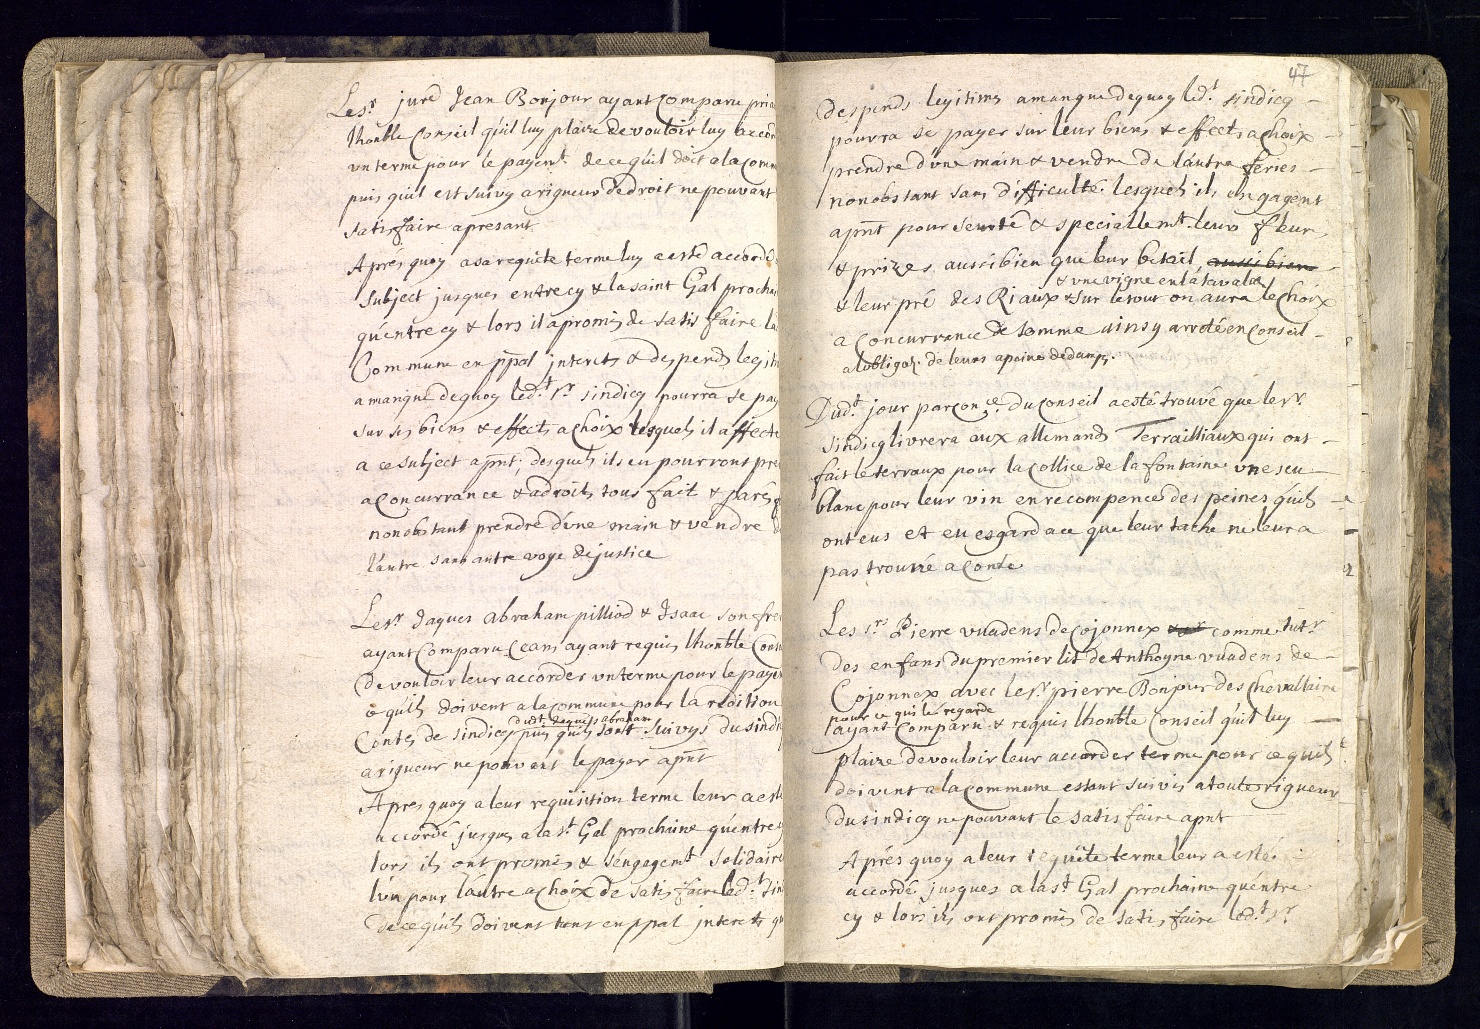 Le Sr juré Jean Bonjour ayant Comparu pria
lhoñble Conseil q'uil luy plaize de vouloir luy accor
vn terme pour le payemt de ce q'uil doit a la Comm
puis q'uil est suivy a rigueur de droit ne pouvant
satisfaire apresant
Apres quoy a sa requéte terme luy a esté accordé
subject jusques entre cy & la saint Gal procha
q'uentre cy & lors il a promis de satisfaire la
Commune en ppal interets & despends legit
a manque de quoy led.t Sr sindicq pourra se pay
sur ses biens & effects a choix lesquels il affecte
a ce subject apñt; desquels ils en pourront pre
a Concurrance & a droits tous fait & parés
nonobstant prendre d'une main & vendre d
l'autre sans autre voye de justice
Le Sr Jaques abraham pilliod & Isaac son fre
ayant Comparu Ceans ayant requis lhoñble Cons
de vouloir leur accorder vn terme pour le paye
ce q'uils doivent a la Commune pour la rdition
dudt Jaques abraham
Contes de sindicq puis q'uils sont suivys du sindi
a rigueur ne pouvent le payer apñt
Apres quoy a leur requisition terme leur a esté
accordé jusques a la st Gal prochaine q'uentre
lors ils ont promis & s'engagemt solidaire
l'un pour l'autre a choix de satisfaire led.t sin
de ce q'uils doivent tant en ppal interets q
47
despends legitims a manque de quoy led.t sindicq
pourra se payer sur leur biens & effects a choix
prendre d'vne main & vendre de l'autre feries
nonobstant sans difficulté lesquels ils engagent
apñt pour seurté & speciallemt leurs fleur
& prizes aussi bien que leur betail aussi bien
& vne vigne en la savalla
& leur pré des Riaux & sur le tout on aura le choix
a Concurrance de somme ainsy arreté en Conseil
a lobligaõ. de leurs a peine de damps.
Dudt jour par con.ce du Conseil a esté trouvé que le Sr
sindicq livrera aux allemands Terrailliaux qui ont
fait le terraux pour la Collice de la fontaine vn escu
blanc pour leur vin en recompence des peines q'uils
ont eus et eu esgard a ce que leur tache ne leur a
pas trouvé a Conte
Les Srs Pierre vuadens de Cojonnex comme tutr
des enfans du premier lit de Anthoyne vuadens de
Cojonnex avec le Sr pierre Bonjour des Chevallaire
pour ce qui le regarde
ayant Comparu & requis lhoñble Conseil q'uil luy
plaize de vouloir leur accorder terme pour ce q'uils
doivent a la Commune estant suivis a toute rigueur
du sindicq ne pouvant le satisfaire apñt
Aprés quoy a leur requéte terme leur a esté
accordé jusques a la st Gal prochaine q'uentre
cy & lors ils ont promis de satisfaire led.t Sr